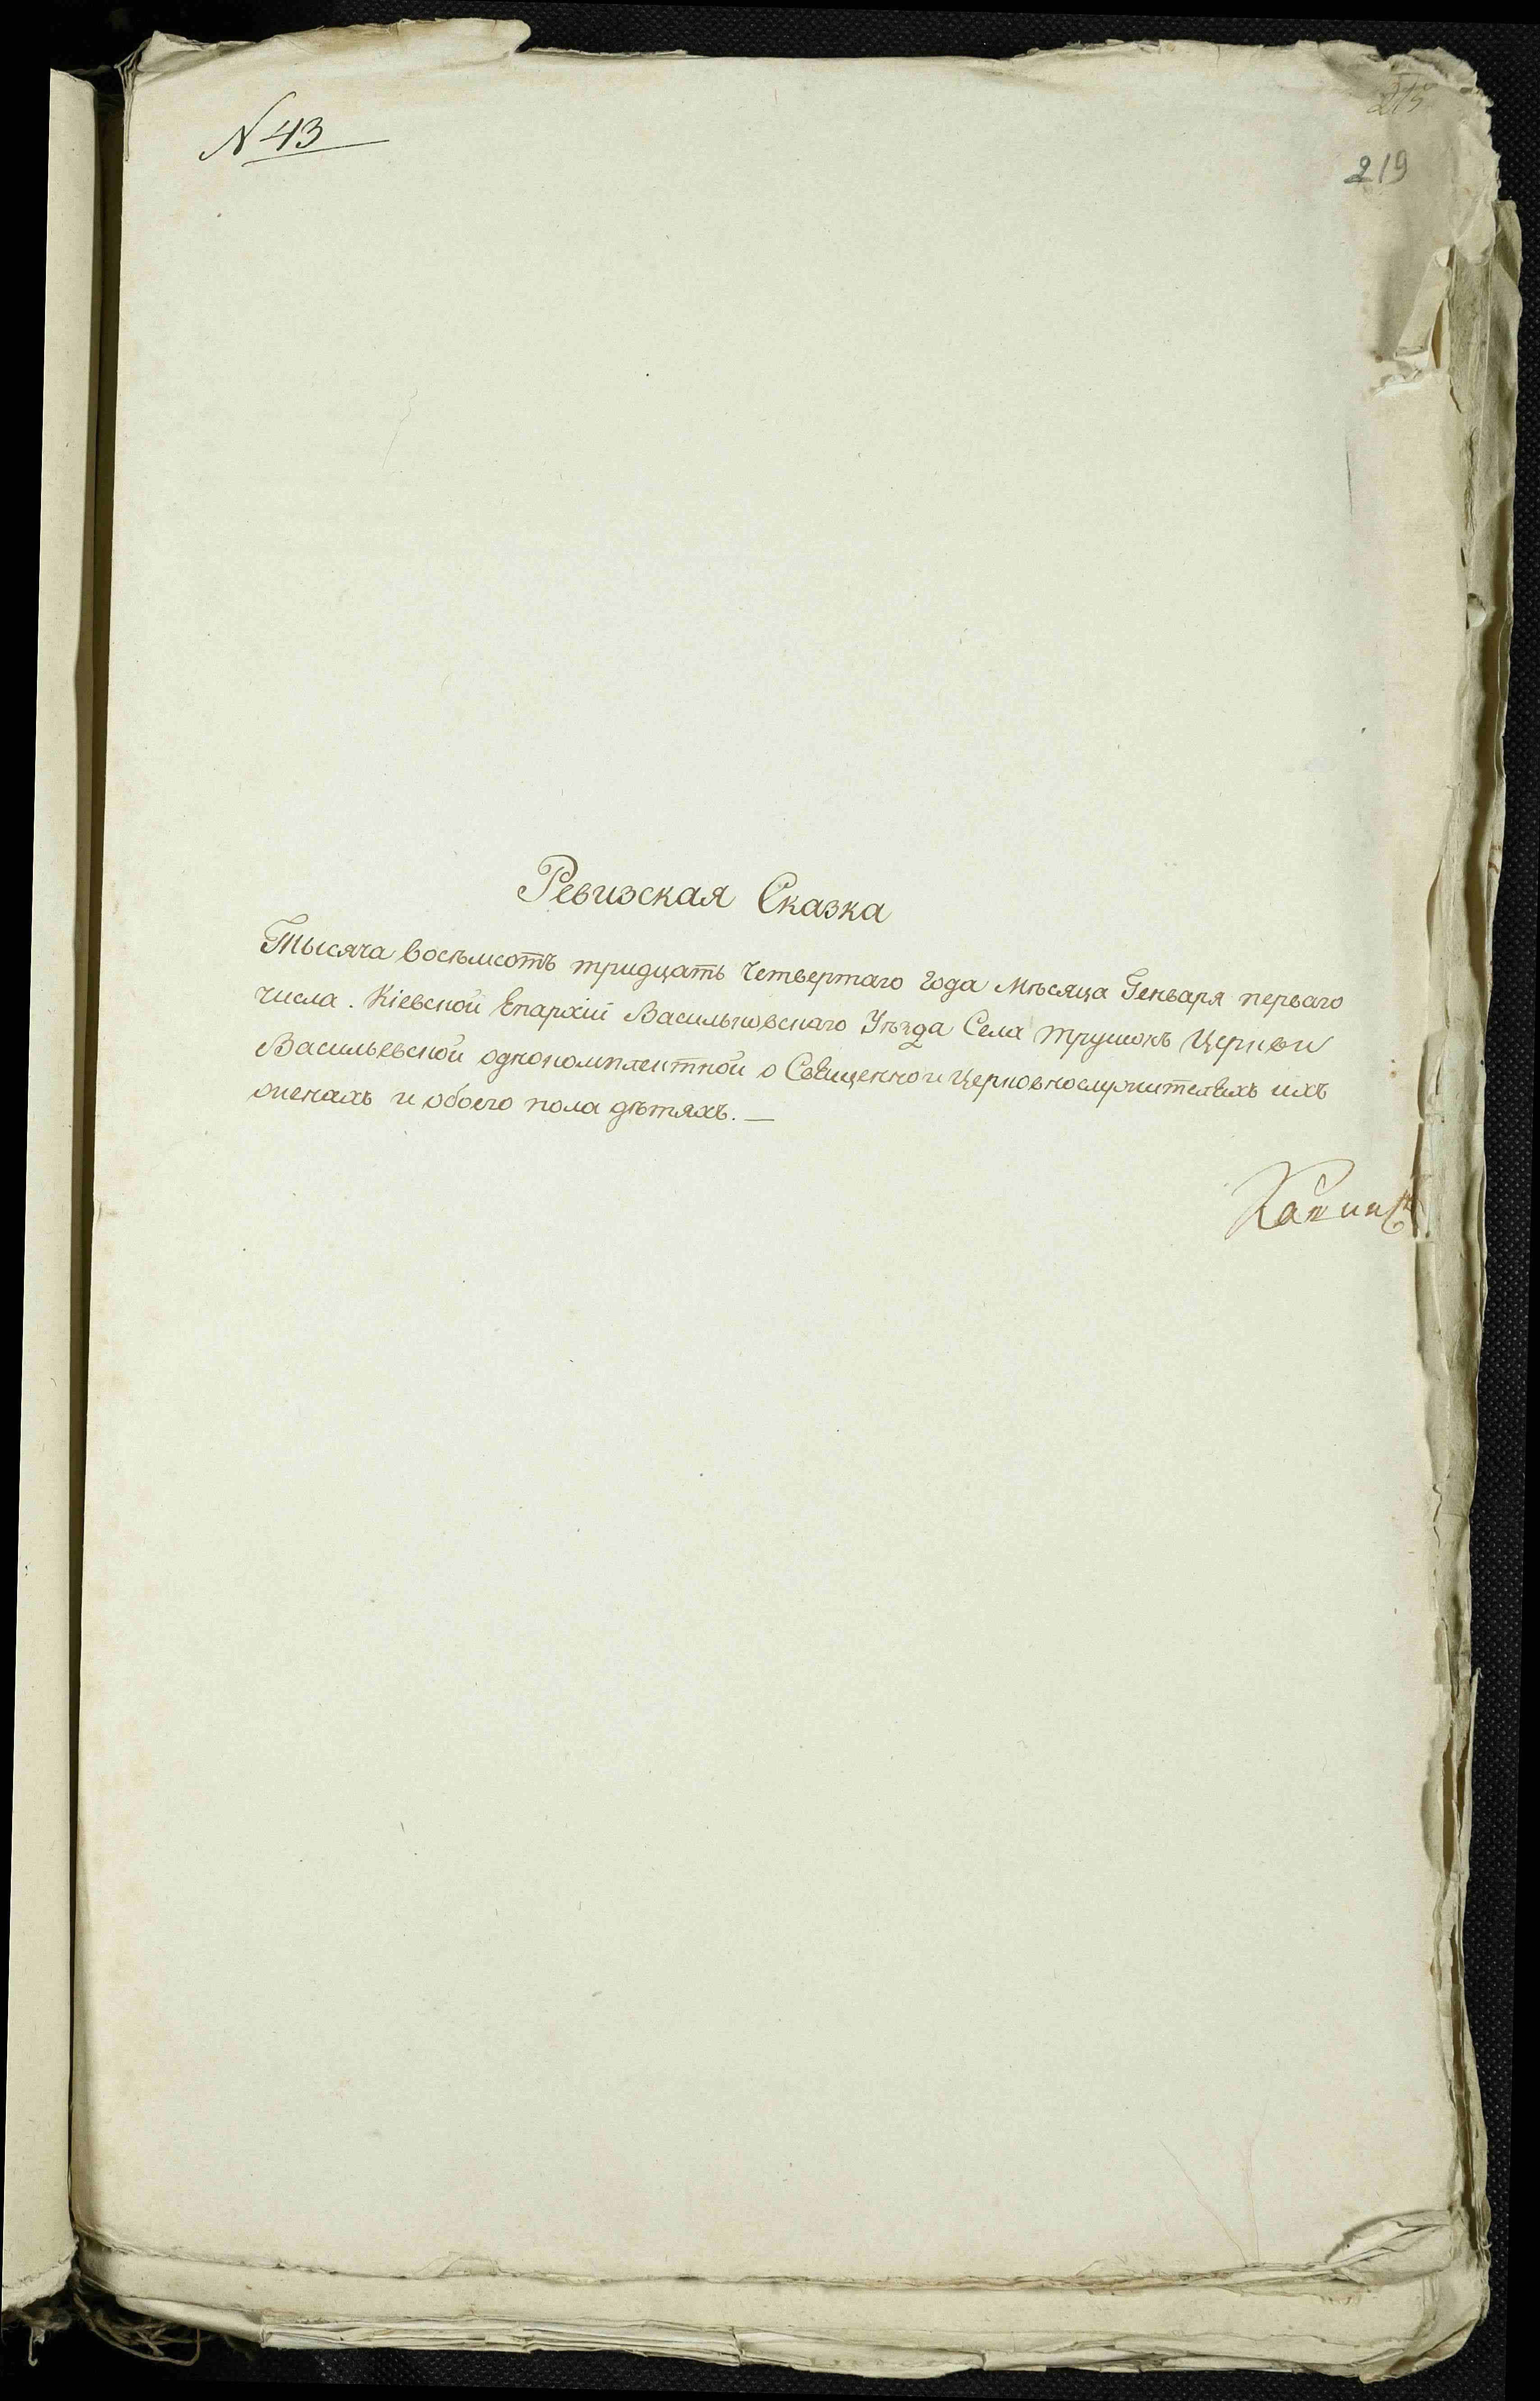 N 43
219
Ревизская Сказка
Тысяча восѣмсотъ тридцать четвертаго года Мѣсяца Генваря перваго
числа. Кіевской Епархіи Васильковскаго Уѣзда Села Трушокъ Церкви
Васильевской однокомплектной о Священно и церковнослужителяхъ ихъ
женахъ и обоего пола дѣтяхъ. —